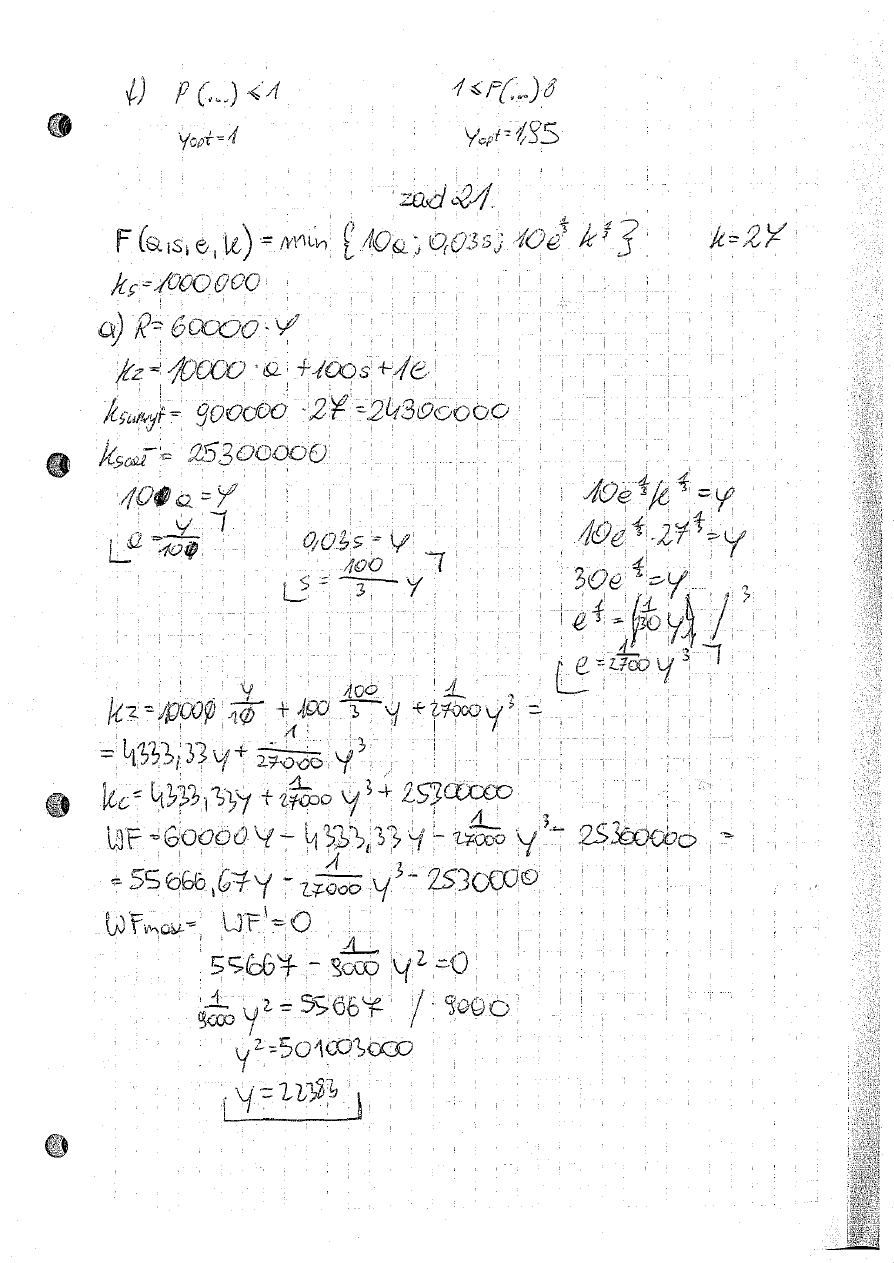 f) P(...) ≤ 1 1 ≤ P(...) 8
yopt = 1 yopt = 1,95
zad 21.
F(a,s,e,k) = min {10a ; 0,03s ; 10e^{1/3} k^{1/3}} k=27
ks = 1000000
a) R = 60000·y
kz = 10000·a + 100s + 1e
= 900000·27 = 24300000
= 25300000
10a = y
a = y/10
0,03s = y
s = 100/3 y
10e^{1/3} k^{1/3} = y
10e^{1/3}·27^{1/3} = y
30e^{1/3} = y
e^{1/3} = (1/30 y) /^3
e = 1/2700 y^3
kz = 10000 y/10 + 100 100/3 y + 1/27000 y^3 =
= 4333,33y + 1/27000 y^3
kc = 4333,33y + 1/27000 y^3 + 25300000
WF = 60000y - 4333,33y - 1/27000 y^3 - 25300000 =
= 55666,67y - 1/27000 y^3 - 2530000
WFmax = WF' = 0
55667 - 1/9000 y^2 = 0
1/9000 y^2 = 55667 / · 9000
y^2 = 501003000
y = 22383